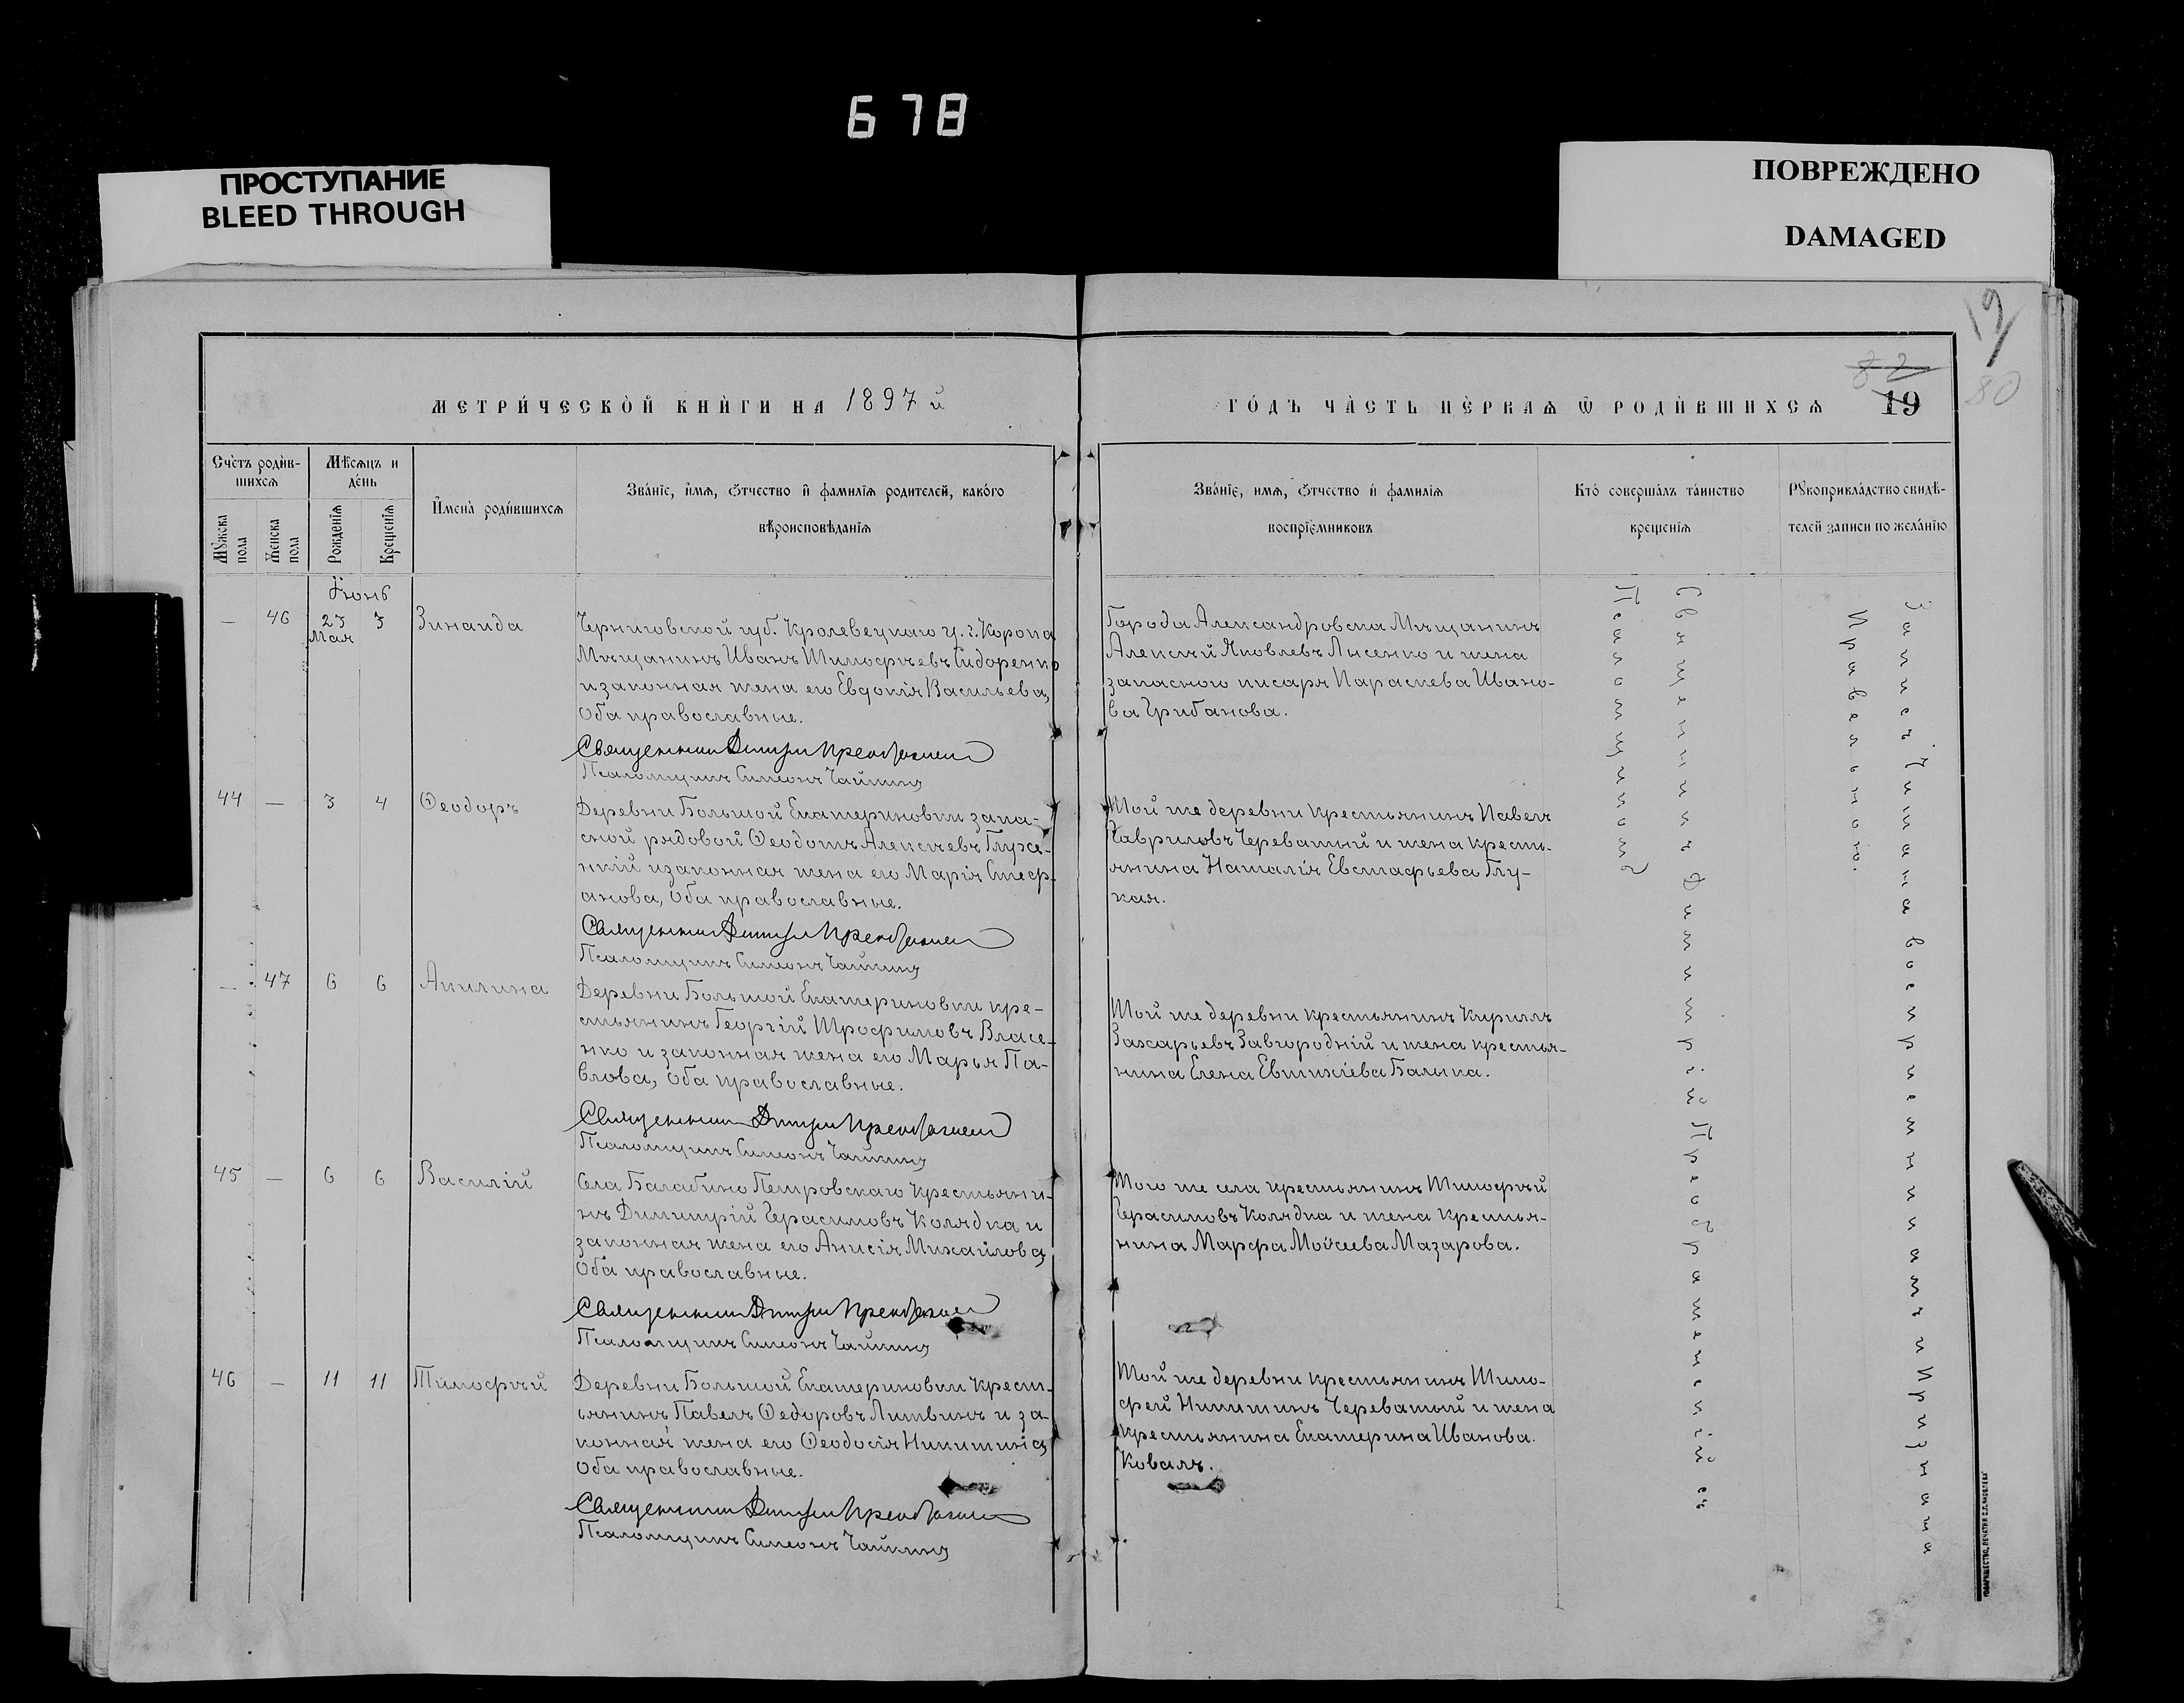 678
ПРОСТУПАНИЕ
BLEED THROUGH
ПОВРЕЖДЕНО
DAMAGED
19
82
80
19
МЕТРИ́ЧЕСКОЙ КНИ́ГИ НА 1897 й
ГО́ДЪ ЧА́СТЬ ПЕ́РВАѦ Ѿ РОДИ́ВШИХСѦ
Сче́тъ роди́в-
шихсѧ
Мѣ́сѧцъ и
де́нь
Мꙋ́жеска
пола
Же́нска
пола
Рожде́нїѧ
Креще́нїѧ
И҆мена̀ роди́вшихсѧ
Зва́нїе, и҆мѧ, ѻ҆́тчество и҆ фами́лїѧ роди́телей, како́го
вѣроисповѣ́данїѧ
Зва́нїе, имѧ, ѻ҆́тчество и҆ фами́лїѧ
воспрїе́мниковъ
Кто̀ соверша́лъ та́инство
креще́нїѧ
Рꙋкоприкла́дство свидѣ́-
телей записи по жела́нїю
Іюнь
— 46 23 3 Зинаида
Мая
Черниговской губ. Кролевецкаго у. г. Коропа
Мѣщанинъ Иванъ Тимофѣевъ Сидоренко
и законная жена его Евдокія Васильева,
оба православные.
Священникъ Димитрій Преображенскій
Псаломщикъ Симеонъ Чайкинъ
Города Александровска Мѣщанинъ
Алексѣй Яковлевъ Лысенко и жена
запаснаго писаря Параскева Ивано-
ва Грибанова.
44 — 3 4 Ѳеодоръ
Деревни Большой Екатериновки запа-
сной рядовой Ѳеодотъ Алексѣевъ
и законная жена его Марія Стеф-
анова, оба православные.
Священникъ Димитрій Преображенскій
Псаломщикъ Симеонъ Чайкинъ
Той же деревни крестьянинъ Павелъ
Гавриловъ Череватый и жена кресть-
янина Наталія Евстафьева Глу-
кая.
— 47 6 6 Акилина
Деревни Большой Екатериновки кре-
стьянинъ Георгій Трофимовъ Власе-
нко и законная жена его Марья Па-
влова, оба православные.
Священникъ Димитрій Преображенскій
Псаломщикъ Симеонъ Чайкинъ
Той же деревни крестьянинъ Кириллъ
Захарьевъ Завгородній и жена крестья-
нина Елена Евтихіева Балыка.
45 — 6 6 Василій
Села Балабино Петровскаго крестьяни-
нъ Димитрій Герасимовъ Колядка и
законная жена его Анисія Михайлова,
оба православные.
Священникъ Димитрій Преображенскій
Псаломщикъ Симеонъ Чайкинъ
Того же села крестьянинъ Тимофѣй
Герасимовъ Колядка и жена крестья-
нина Марфа Мойсеева Мазарова.
46 — 11 11 Тимофѣй
Деревни Большой Екатериновки крест-
ьянинъ Павелъ Ѳедоровъ Литвинъ и за-
конная жена его Ѳеодосія Никитина,
оба православные.
Священникъ Димитрій Преображенскій
Псаломщикъ Симеонъ Чайкинъ
Той же деревни крестьянинъ Тимо-
фей Никитинъ Череватый и жена
крестьянина Екатерина Иванова
Коваль.
Священникъ Димитрій Преображенскій съ
Псаломщикомъ
Запись читана воспріемникамъ и признана
Правильною.